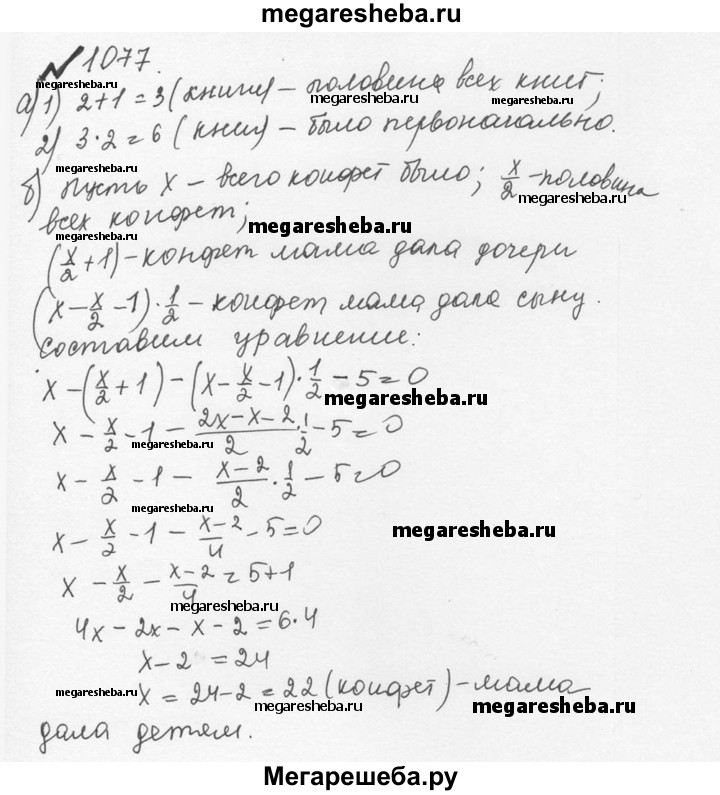 megaresheba.ru
№ 1077.
а) 1) 2+1=3 (книги) – половина всех книг;
megaresheba.ru megaresheba.ru
2) 3·2=6 (книг) – было первоначально.
megaresheba.ru megaresheba.ru
б) Пусть x – всего конфет было; x/2 – половина
megaresheba.ru
всех конфет; megaresheba.ru
(x/2+1) – конфет мама дала дочери
(x–x/2–1)·1/2 – конфет мама дала сыну.
Составим уравнение:
x–(x/2+1)–(x–x/2–1)·1/2–5=0
megaresheba.ru
x–x/2–1–(2x–x–2)/2·1/2–5=0
megaresheba.ru
x–x/2–1–(x–2)/2·1/2–5=0
megaresheba.ru
x–x/2–1–(x–2)/4–5=0
megaresheba.ru
x–x/2–(x–2)/4=5+1
megaresheba.ru
4x–2x–x–2=6·4
megaresheba.ru
x–2=24
x=24–2=22 (конфет) – мама
megaresheba.ru megaresheba.ru megaresheba.ru
дала детям.
Мегарешеба.ру